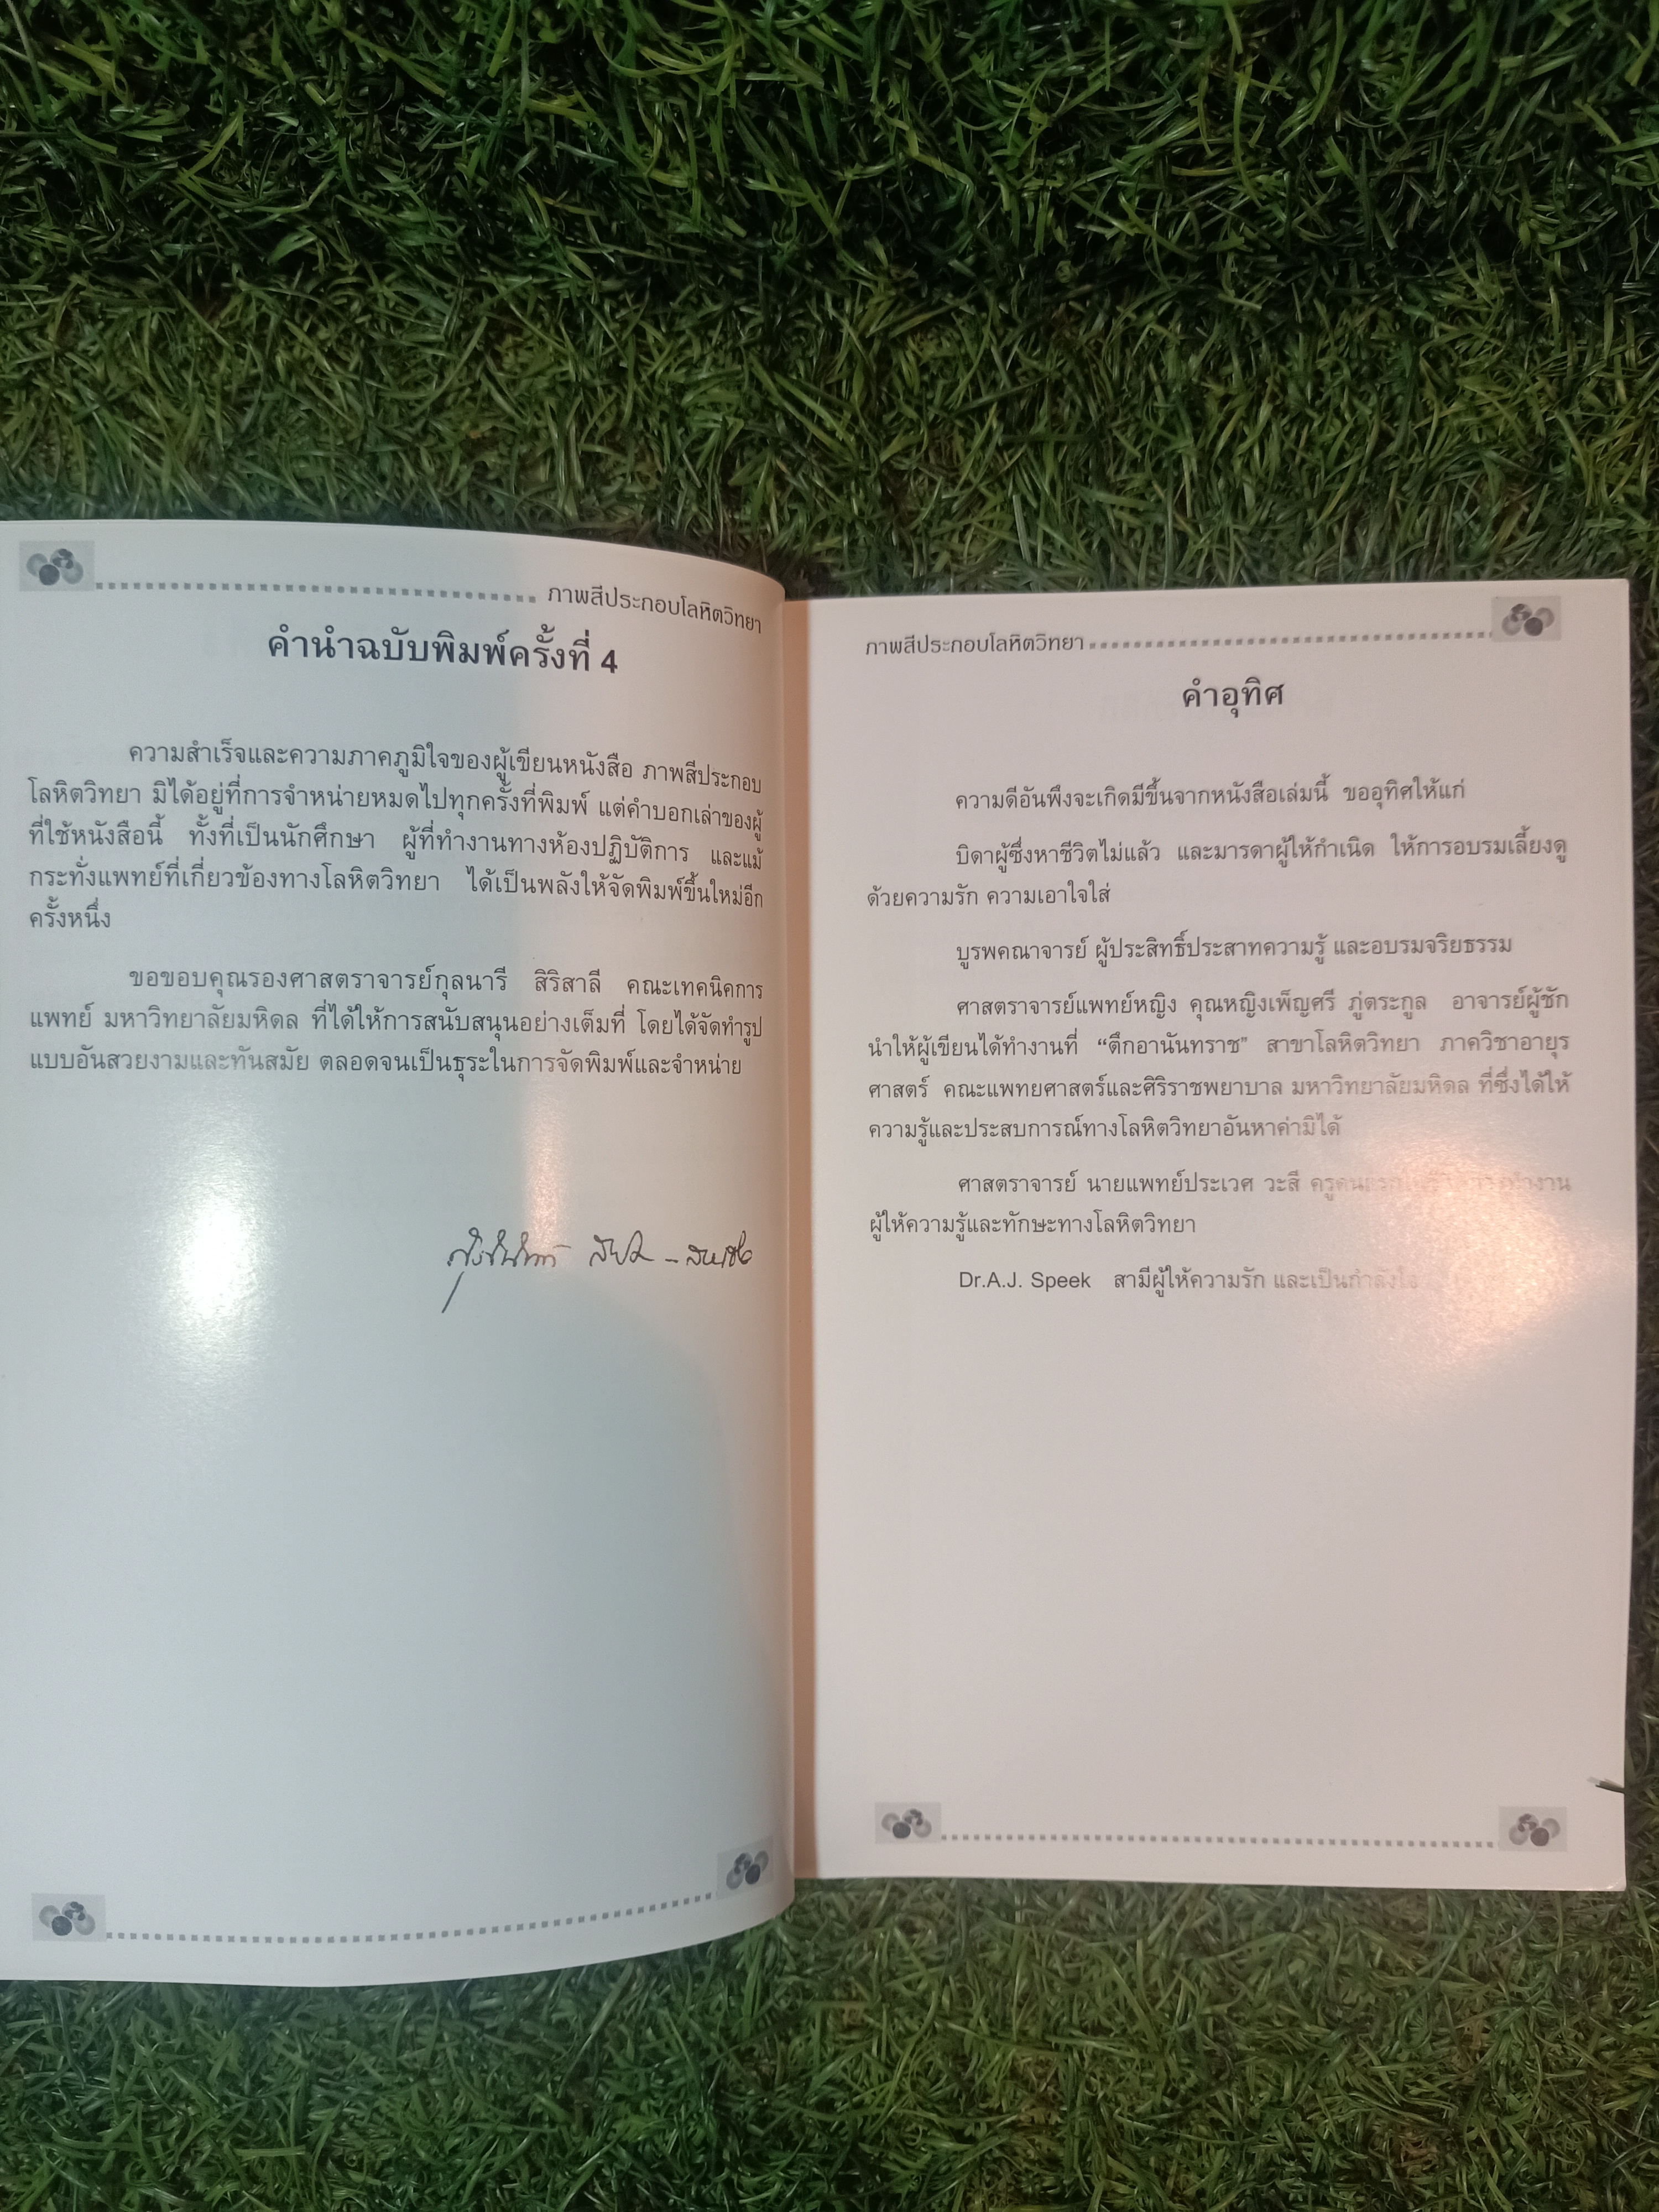 ภาพสีประกอบโลหิตวิทยา
คำนำฉบับพิมพ์ครั้งที่ 4
ความสำเร็จและความภาคภูมิใจของผู้เขียนหนังสือ ภาพสีประกอบ
โลหิตวิทยา มิได้อยู่ที่การจำหน่ายหมดไปทุกครั้งที่พิมพ์ แต่คำบอกเล่าของผู้
ที่ใช้หนังสือนี้ ทั้งที่เป็นนักศึกษา ผู้ที่ทำงานทางห้องปฏิบัติการ และแม้
กระทั่งแพทย์ที่เกี่ยวข้องทางโลหิตวิทยา ได้เป็นพลังให้จัดพิมพ์ขึ้นใหม่อีก
ครั้งหนึ่ง
ขอขอบคุณรองศาสตราจารย์กุลนารี สิริสาลี คณะเทคนิคการ
แพทย์ มหาวิทยาลัยมหิดล ที่ได้ให้การสนับสนุนอย่างเต็มที่ โดยได้จัดทำรูป
แบบอันสวยงามและทันสมัย ตลอดจนเป็นธุระในการจัดพิมพ์และจำหน่าย
ภาพสีประกอบโลหิตวิทยา
คำอุทิศ
ความดีอันพึงจะเกิดมีขึ้นจากหนังสือเล่มนี้ ขออุทิศให้แก่
บิดาผู้ซึ่งหาชีวิตไม่แล้ว และมารดาผู้ให้กำเนิด ให้การอบรมเลี้ยงดู
ด้วยความรัก ความเอาใจใส่
บูรพคณาจารย์ ผู้ประสิทธิ์ประสาทความรู้ และอบรมจริยธรรม
ศาสตราจารย์แพทย์หญิง คุณหญิงเพ็ญศรี ภู่ตระกูล อาจารย์ผู้ชัก
นำให้ผู้เขียนได้ทำงานที่ “ตึกอานันทราช” สาขาโลหิตวิทยา ภาควิชาอายุร
ศาสตร์ คณะแพทยศาสตร์และศิริราชพยาบาล มหาวิทยาลัยมหิดล ที่ซึ่งได้ให้
ความรู้และประสบการณ์ทางโลหิตวิทยาอันหาค่ามิได้
ศาสตราจารย์ นายแพทย์ประเวศ วะสี ครูคนแรก ทำงาน
ผู้ให้ความรู้และทักษะทางโลหิตวิทยา
Dr.A.J. Speek สามีผู้ให้ความรัก และเป็นกำลังใจ